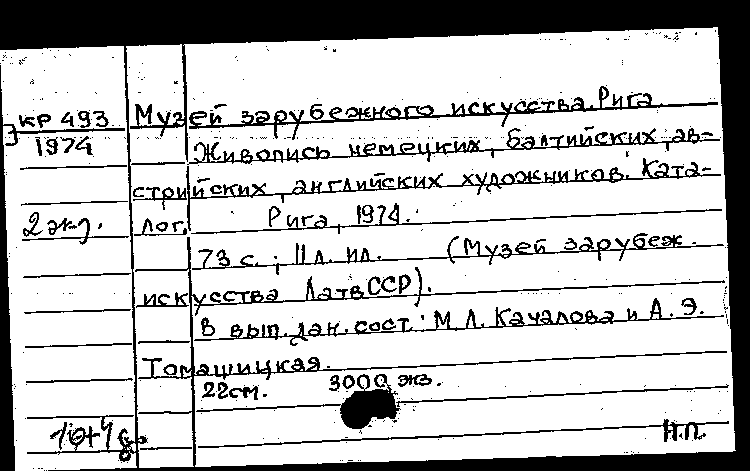 КР 493
1974
2 экз.
Музей зарубежного искусства. Рига
Живопись немецких, балтийских, ав-
стрийских, английских художников. Ката-
лог. Рига, 1974.
73 с.; 11 л. ил. (Музей зарубеж.
искусства ЛатвССР).
В вып. дан. сост.: М.Л. Качалова и А.Э.
Томашицкая.
22см. 3000 экз.
Н.П.